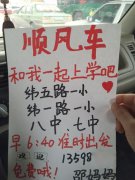 顺风车
和我一起上学吧
纬五路一小
纬一路一小
八中 七中
早6:40准时出发
欢迎 13598
免费哦！ 邵妈妈